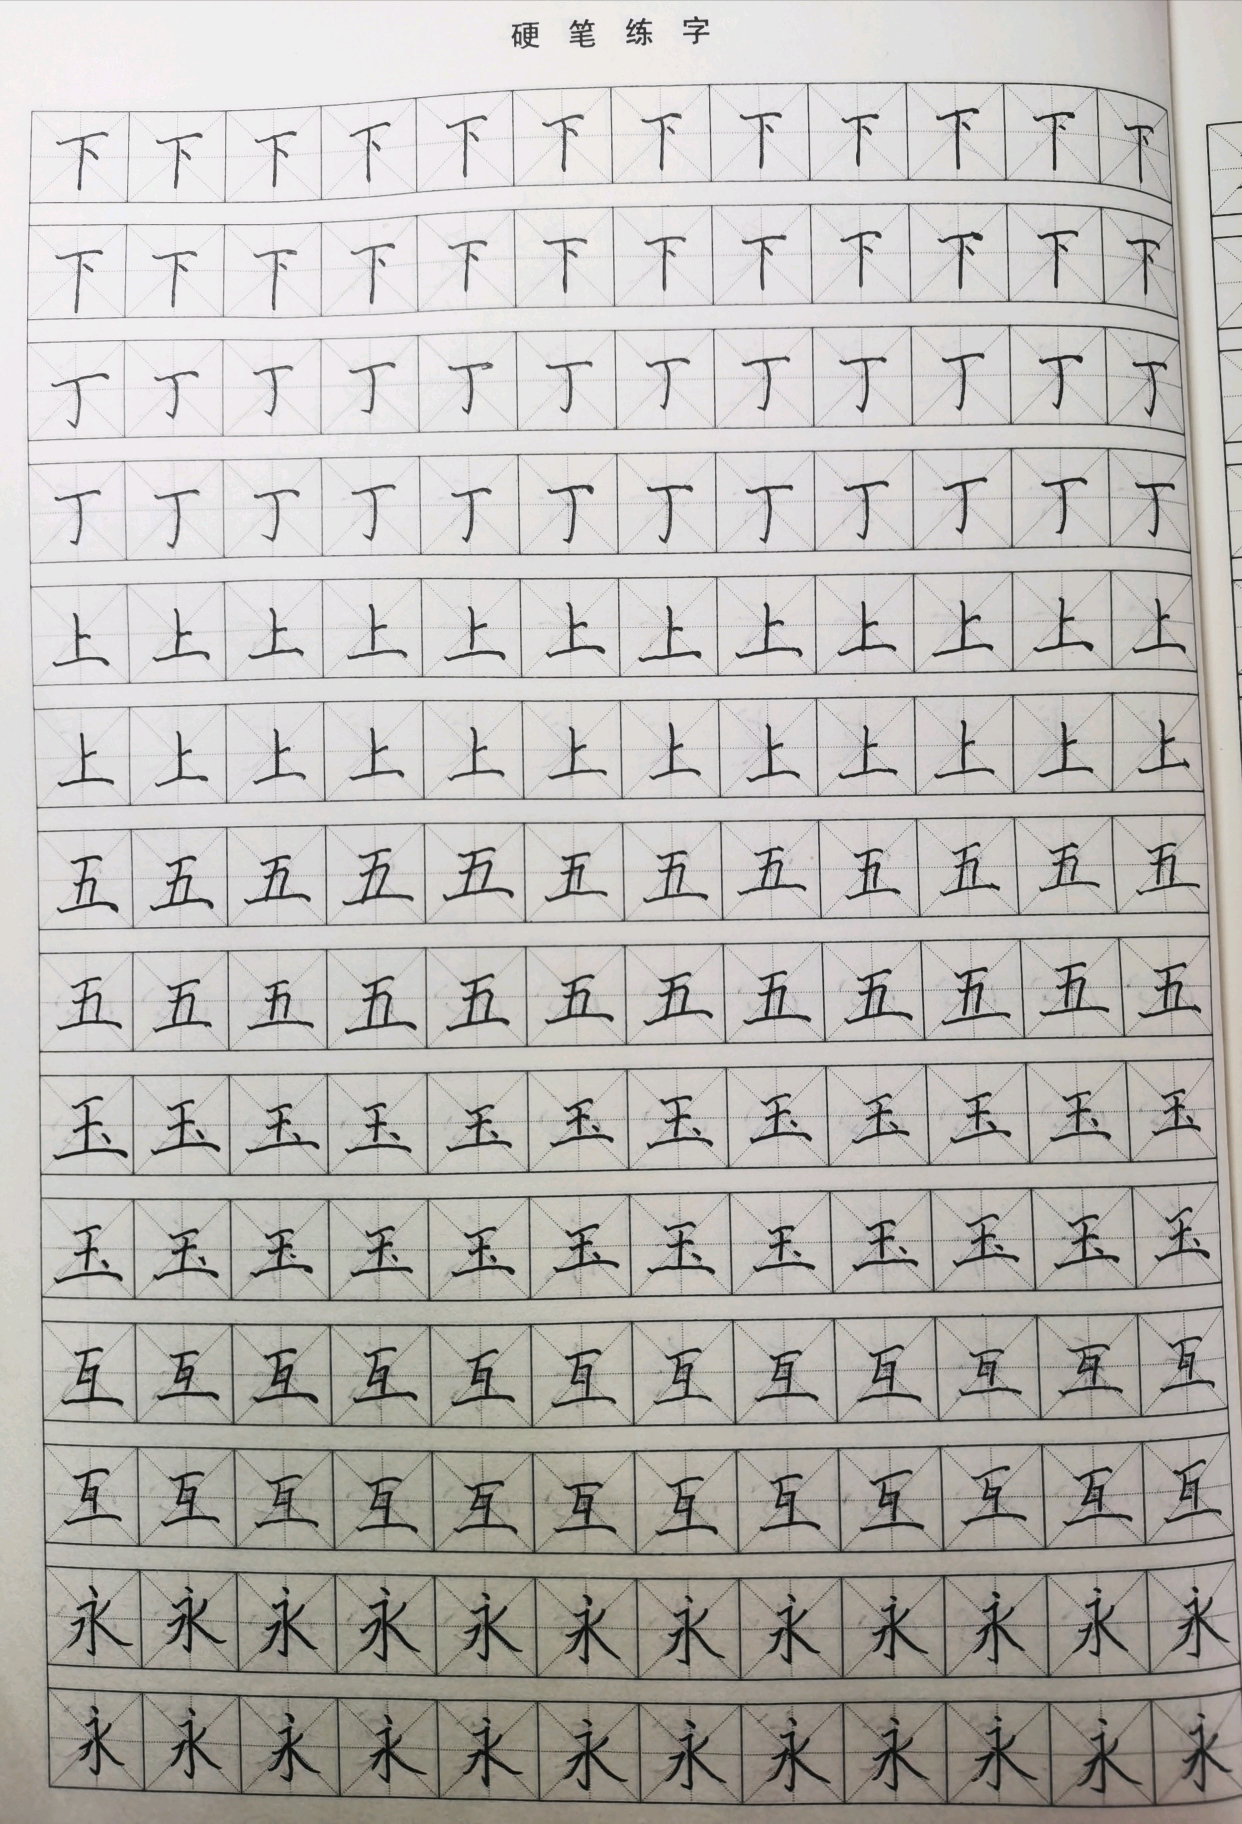 硬笔练字
下下下下下下下下下下下下
下下下下下下下下下下下下
丁丁丁丁丁丁丁丁丁丁丁丁
丁丁丁丁丁丁丁丁丁丁丁丁
上上上上上上上上上上上上
上上上上上上上上上上上上
五五五五五五五五五五五五
五五五五五五五五五五五五
玉玉玉玉玉玉玉玉玉玉玉玉
玉玉玉玉玉玉玉玉玉玉玉玉
互互互互互互互互互互互互
互互互互互互互互互互互互
永永永永永永永永永永永永
永永永永永永永永永永永永